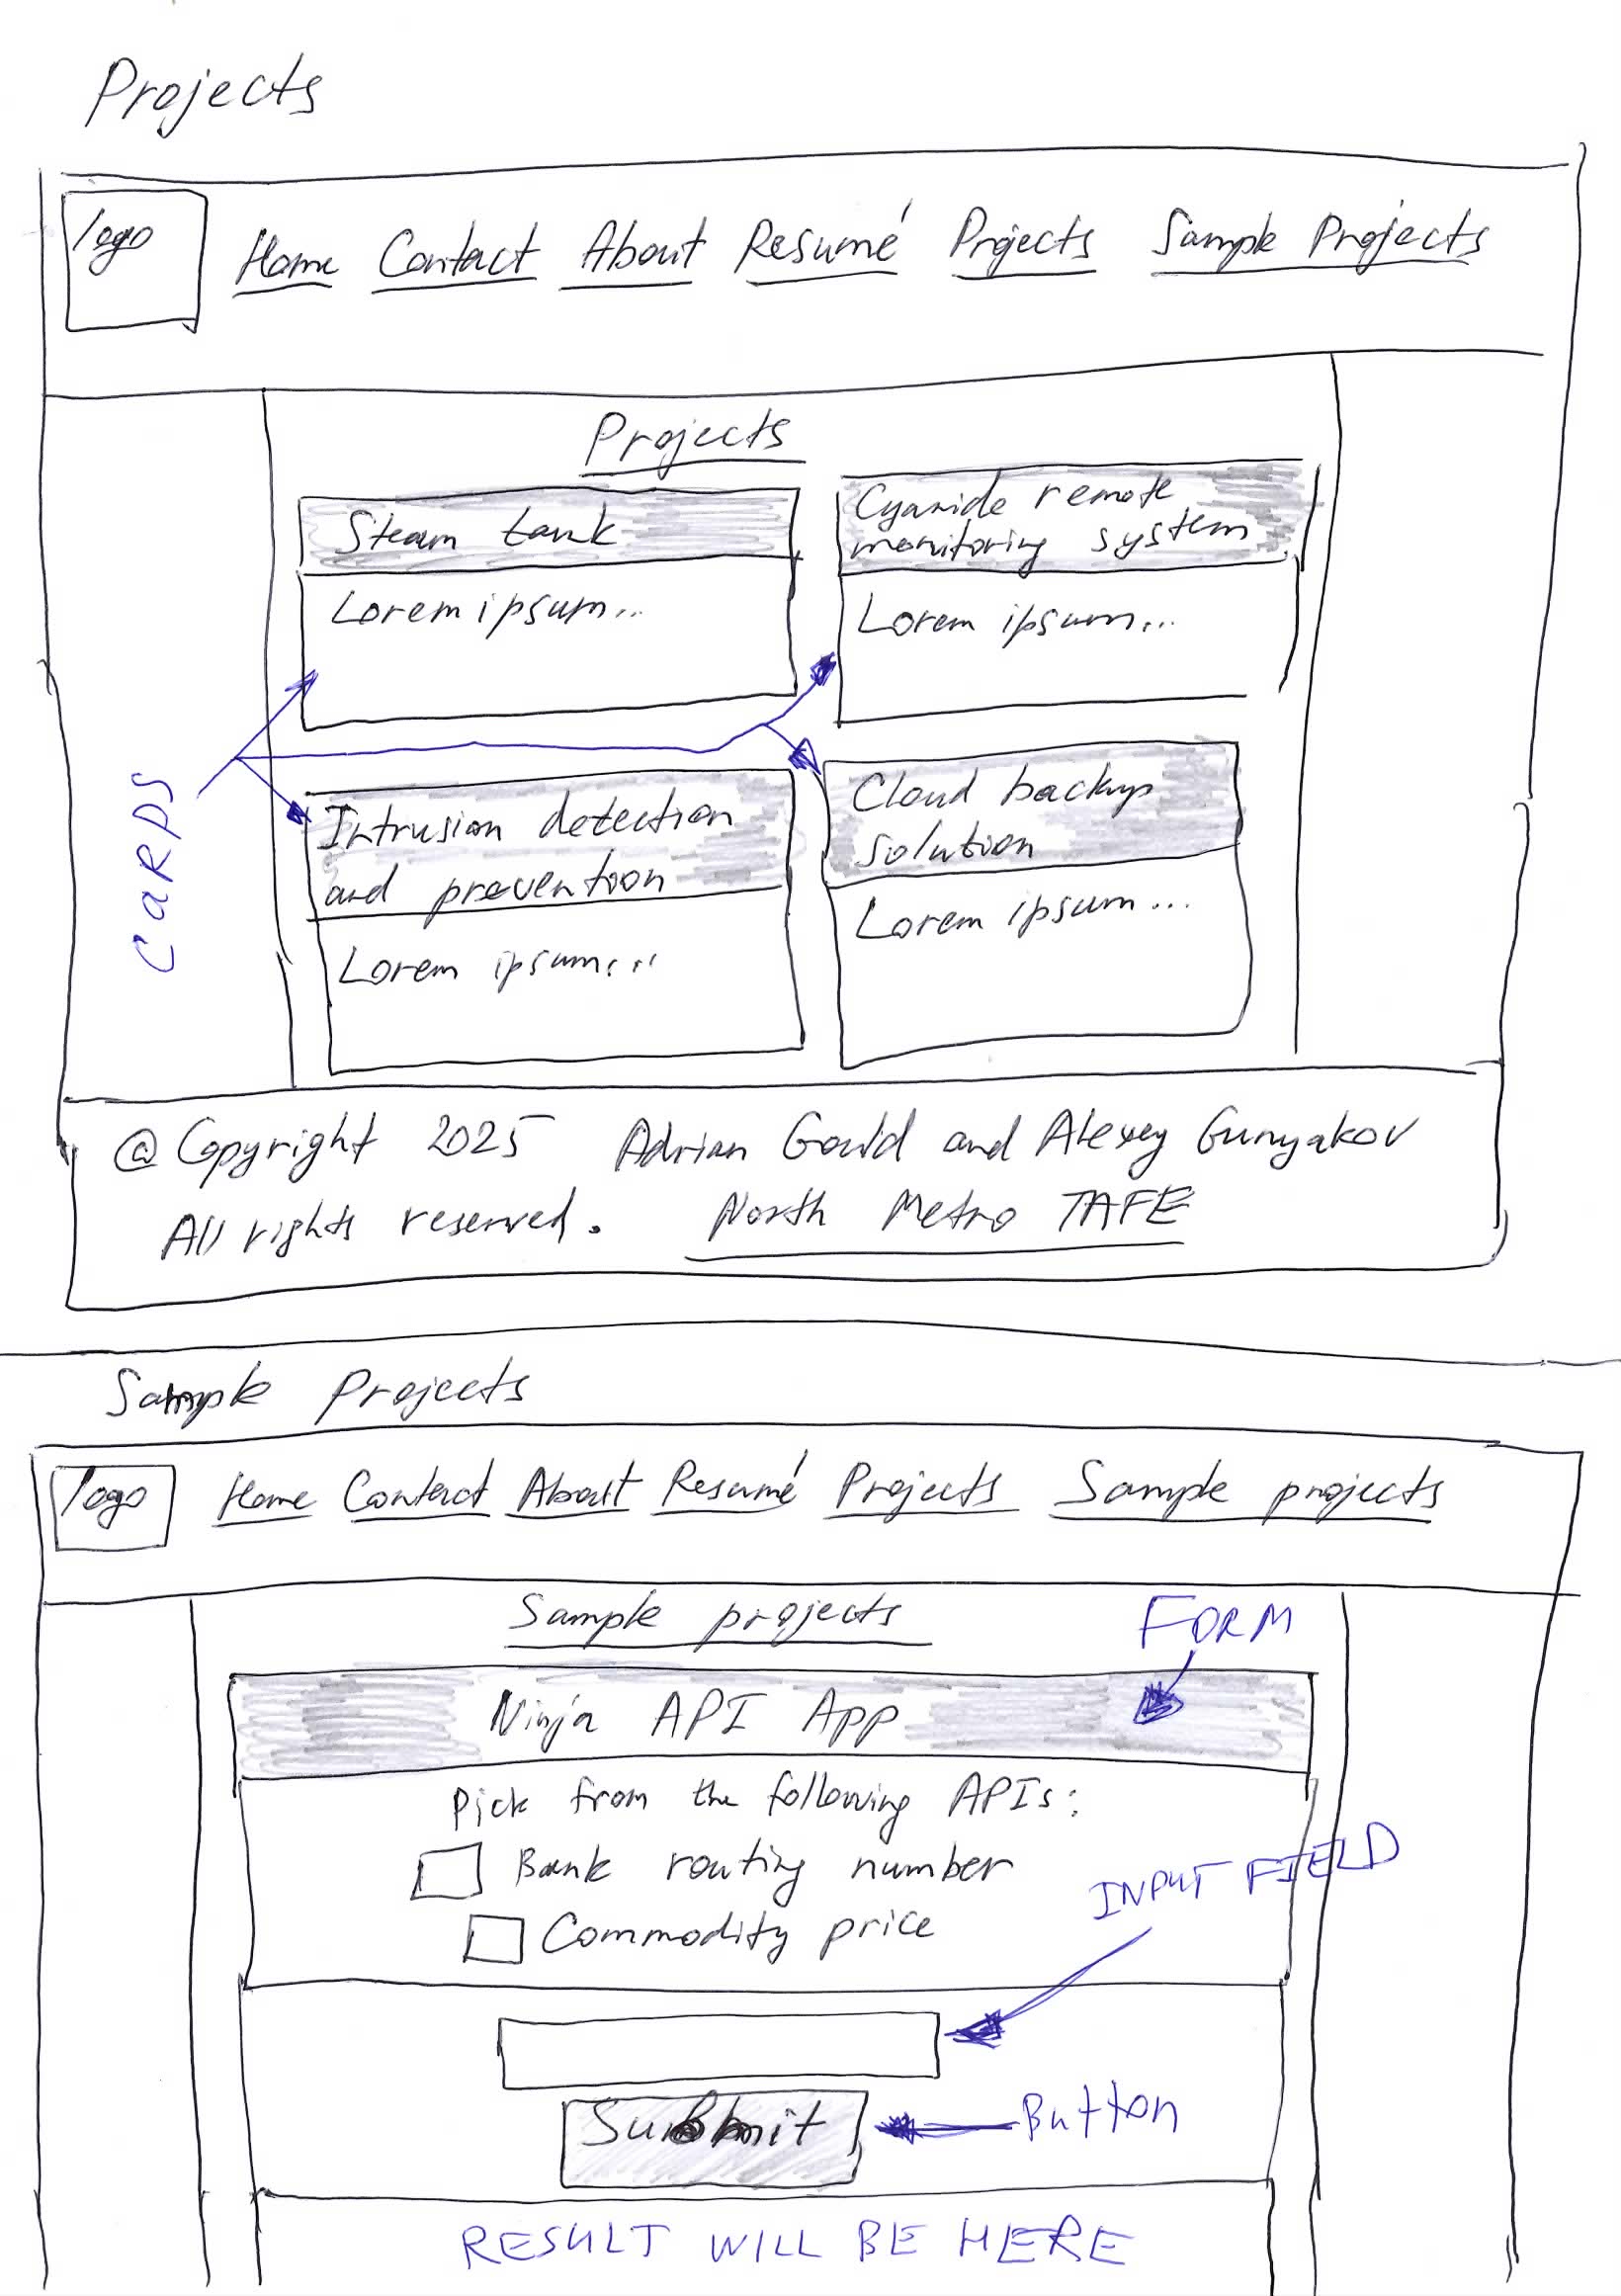 Projects
logo
Home Contact About Resumé Projects Sample Projects
Projects
Steam tank
Lorem ipsum...
Cyanide remote
monitoring system
Lorem ipsum...
CARDS
Intrusion detection
and prevention
Lorem ipsum...
Cloud backup
solution
Lorem ipsum...
@ Copyright 2025 Adrian Gould and Alexey Gunyakov
All rights reserved. North Metro TAFE
Sample Projects
logo
Home Contact About Resumé Projects Sample projects
Sample projects
FORM
Ninja API App
Pick from the following APIs:
Bank routing number
Commodity price
INPUT FIELD
Submit
Button
RESULT WILL BE HERE